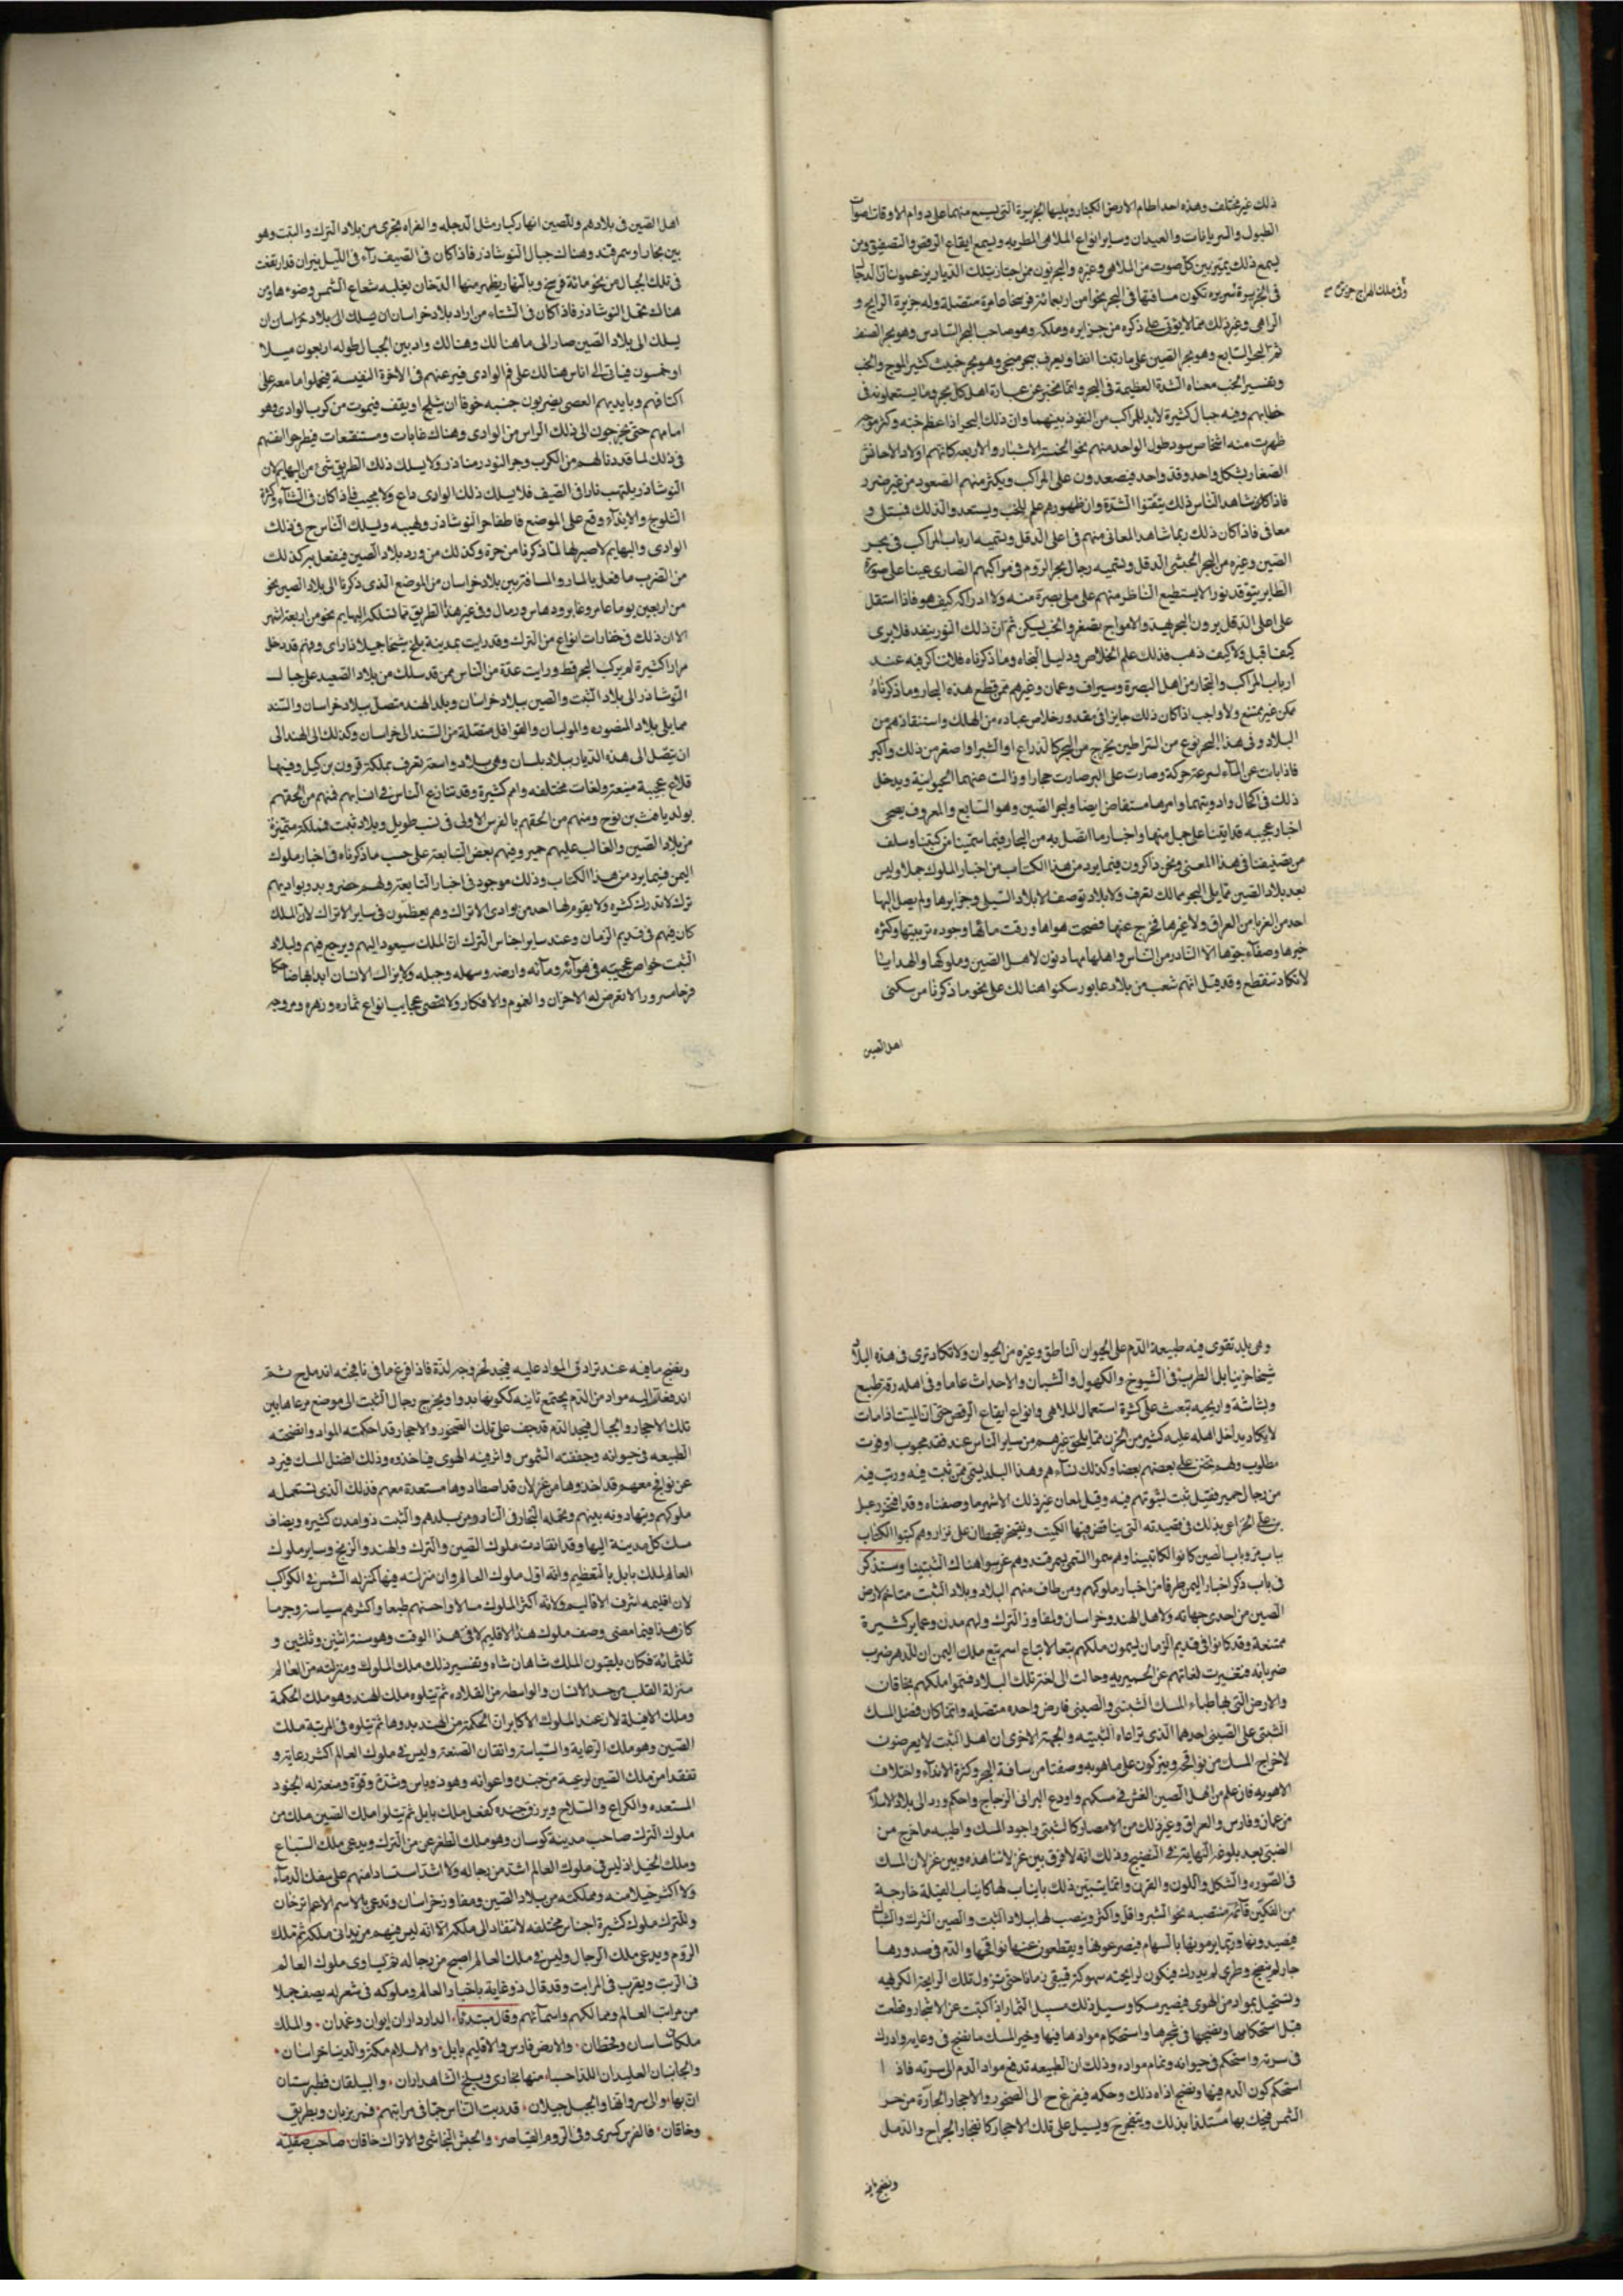 ذلك غير مختلف وهذه احد اطام الارض الكبار ويليها الجزيرة التى يسمع منها على دوام الاوقات اصوات
الطبول والسريانات والعيدان وساير انواع الملاهى المطربه ويسمع ايقاع الرقص والتصفيق ومن
يسمع ذلك يميز بين كل صوت من الملاهى وغيره والبحريون ممن اجتاز بتلك الديار يزعمون ان الدجال
فى الجزيرة سريره تكون مسافتها فى البحر نحوا من اربعمائة فرسخ عامرة متصلة وله جزيرة الرانج و
الرامى وغير ذلك مما لا يؤتى على ذكره من جزايره وملكه وهو صاحب البحر السادس وهو بحر الصنف
ثم البحر السابع وهو بحر الصين على ما رتبنا انفا ويعرف ببحر صنجى وهو بحر خبيث كثير الموج والخب
وتفسير الخب معناه الشدة العظيمة فى البحر وانما نخبر عن عبارة اهل كل بحر وما يستعملونه فى
خطابهم وفيه جبال كثيرة لابد للمراكب من النفوذ بينهما وان ذلك البحر اذا عظم خبه وكثر موجه
ظهرت منه اشخاص سود طول الواحد منهم نحو الخمسة الاشبار والاربعه كانهم اولاد الاحابش
الصغار بشكل واحد وقد واحد فيصعدون على المراكب ويكثر منهم الصعود من غير ضرر
فاذا كان شاهد الناس ذلك تيقنوا الشدة وان ظهورهم علم للخب ويستعدوا لذلك فمبتلى و
معافى فاذا كان ذلك ربما شاهد المعافى منهم فى اعلى الدقل وتسميه ارباب المراكب فى بحر
الصين وغيره من البحر الحبشى الدقل وتسميه رجال بحر الروم فى مراكبهم الصارى عينا على صورة
الطاير يتوقد نورا لا يستطيع الناظر منهم على ملى بصره منه ولا ادراكه كيف هو فاذا استقل
على اعلى الدقل يرون البحر يهدء والامواج تصغر والخب يسكن ثم ان ذلك النور ينفد فلا يرى
كيف اقبل ولا كيف ذهب فذلك علم الخلاص ودليل النجاه وما ذكرناه فلا تناكر فيه عند
ارباب المراكب والتجار من اهل البصرة وسيراف وعمان وغيرهم ممن قطع هذه البحار وما ذكرناه
ممكن غير ممتنع ولا واجب اذا كان ذلك جايزا فى مقدور خلاص عباده من الهلك واستنقاذهم من
البلاد وفى هذا البحر نوع من السراطين يخرج من البحر كالذراع او الشبر او اصغر من ذلك واكبر
فاذا بانت عن الماء لسرعة حركة وصارت على البر صارت حجارا وزالت عنها الحيوانية ويدخل
ذلك فى اكحال وادويتها وامرها مستفاض ايضا ولبحر الصين وهو السابع والمعروف بصنجى
اخبار عجيبه قد اتينا على جمل منها واخبار ما اتصل به من البحار فيما سمينا من كتبنا وسلف
من تصنيفنا فى هذا المعنى ونحن ذاكرون فيما يرد من هذا الكتاب من اخبار الملوك جملا وليس
بعد بلاد الصين مما يلى البحر ممالك تعرف ولا بلاد توصف الا بلاد السيلى وجزايرها ولم يصل اليها
احد من الغربا من العراق ولا غيرها فخرج عنها فصحت هواها ورقت مائها وجوده تربتها وكثره
خيرها وصفاء جوها الا النادر من الناس واهلها مهادنون لاهل الصين وملوكها والهدايا
لا تكاد تنقطع وقد قيل انهم شعب من بلاد عابور سكنوا هنا لك على نحو ما ذكرنا من سكنى
اهل الصين
اهل الصين فى بلادهم وللصين انهار كبار مثل الدجله والفراه تجرى من بلاد الترك والتبت وهو
بين بخارا وسمرقند وهناك جبال النوشاذر فاذا كان فى الصيف رآء فى الليل نيران قد ارتفعت
فى تلك الجبال من نحو مائة فرسخ وبالنهار يظهر منها الدخان يغلبه شعاع الشمس وضوءها ومن
هناك تحمل النوشاذر فاذا كان فى الشتاء من اراد بلاد خراسان ان يسلك الى بلاد خراسان ان
يسلك الى بلاد الصين صار الى ما هنالك وهنالك واد بين الجبال طوله اربعون ميلا
او خمسون فياتى الى اناس هنالك على فم الوادى فيرغبهم فى الاخرة النفيسة فيحملوا ما معه على
اكتافهم وبايديهم العصى يضربون جنبه خوفا ان يبلج او يقف فيموت من كرب الوادى وهو
امامهم حتى يخرجون الى ذلك الراس من الوادى وهناك غابات ومستنقعات فيطرحوا انفسهم
فى ذلك لما قد نالهم من الكرب وحر النوشاذر ولا يسلك ذلك الطريق شئ من البهايم لان
النوشاذر يلتهب نارا فى الصيف فلا يسلك ذلك الوادى داع ولا مجيب فاذا كان فى الشتاء وكثرة
الثلوج والانداء وقع على الموضع فاطفا حر النوشاذر ولهيبه ويسلك الناس ح فى ذلك
الوادى والبهايم لا صبر لها لما ذكرنا من حره وكذلك من ورد بلاد الصين فيفعل به كذلك
من الضرب ما فعل بالمار والمسافة بين بلاد خراسان من الموضع الذى ذكرنا الى بلاد الصين نحو
من اربعين يوما عامر وغامر ودهاس ورمال وفى غير هذا الطريق مما تسلكه البهايم نحو من اربعة اشهر
الا ان ذلك فى خفارات انواع من الترك وقد رايت بمدينة بلخ شيخا جميلا ذا راى وفهم قد دخل
مرارا كثيرة لم يركب البحر قط ورايت عدة من الناس ممن قد سلك من بلاد الصغيد على جبال
النوشاذر الى بلاد التبت والصين ببلاد خراسان وبلد الهند متصل ببلاد خراسان والسند
مما يلى بلاد المنصوره والمولبان والقوافل متصلة من السند الى خراسان وكذلك الى الهند الى
ان يتصل الى هذه الديار ببلاد بلستان وهى بلاد واسعة تعرف بمملكة قرون بن كيل وفيها
قلاع عجيبة منيعة ولغات مختلفه وامم كثيرة وقد تنازع الناس فى انسابهم فمنهم من الحقهم
بولد يافث بن نوح ومنهم من الحقهم بالفرس الاولى فى نسب طويل وبلاد تبت فمملكة متميزة
من بلاد الصين والغالب عليهم حمير وفيهم بعض التبابعة على حسب ما ذكرناه فى اخبار ملوك
اليمن فيما يرد من هذا الكتاب وذلك موجود فى اخبار التبابعة ولهم حضر وبدو وبواديهم
ترك لا تدرك كثره ولا يقوم لها احد من بوادى الاتراك وهم يعظمون فى ساير الاتراك لان الملك
كان فيهم فى قديم الزمان وعند ساير اجناس الترك ان الملك سيعود اليهم ويرجع فيهم ولبلاد
التبت خواص عجيبه فى هوائه ومائه وارضه وسهله وجبله ولا يزال الانسان ابدا بها ضاحكا
فرحا مسرورا لا تعرض له الاحزان والغموم والافكار ولا تحصى عجايب انواع ثماره وزهره ومروجه
وهى بلد تقوى فيه طبيعة الدم على الحيوان الناطق وغيره من الحيوان ولا تكاد ترى فى هذه البلاد
شيخا حزينا بل الطرب فى الشيوخ والكهول والشبان والاحداث عاما وفى اهله رقة طبع
وبشاشة واريحيه تبعث على كثرة استعمال الملاهى وانواع ايقاع الرقص حتى ان الميت اذا مات
لا يكاد يداخل اهله عليه كثير من الحزن مما يلحق غيرهم من ساير الناس عند فقد محبوب او فوت
مطلوب ولهم تحنن على بعضهم بعضا وكذلك نساءهم وهذا البلد يسمى ممن ثبت فيه ورتب فيه
من رجال حمير فقيل تبت لثبوتهم فيه وقيل لمعان غير ذلك الاشهر ما وصفناه وقد افتخر دعبل
بن على الخزاعى بذلك فى قصيدته التى يناقض فيها الكميت ويفتخر بقحطان على نزار وهم كتبوا الكتاب
بباب مرو وباب الصين كانوا الكاتبينا وهم سموا السمى بسمرقند وهم غرسوا هناك التبتينا وسنذكر
فى باب ذكر اخبار اليمن طرفا من اخبار ملوكهم ومن طاف منهم البلاد وبلاد التبت متاخم لارض
الصين من احدى جهاته ولاهل الهند وخراسان ولمفاوز الترك ولهم مدن وعماير كثيرة
ممتنعة وقد كانوا فى قديم الزمان يسمون ملكهم تبعا لاتباع اسم تبع ملك اليمن ان للدهر ضرب
ضرباته فتغيرت لغاتهم عن الحميريه وحالت الى لغة تلك البلاد فسموا ملكهم بخاقان
والارض التى بها ظباء المسك التبتى والصينى فارض واحده متصله وانما كان فضل المسك
التبتى على الصينى احدهما الذى تراعاه التبتيه والجهة الاخرى ان اهل التبت لا يعرضون
لاخراج المسك من نوافجه ويتركون على ما هو به وصفنا من مسافة البحر وكثرة الانداء واختلاف
الاهويه فان علم من اهل الصين الغش فى مسكهم واودع البرانى الزجاج واحكم ورد الى بلاد الاسلام
من عمان وفارس والعراق وغير ذلك من الامصار كالتبتى واجود المسك واطيبه ما خرج من
الضبى بعد بلوغ النهاية فى النضيج وذلك انه لا فرق بين غزلاننا هذه وبين غزلان المسك
فى الصوره والشكل واللون والقرن وانما يتبين ذلك بانياب لها كانياب الفيلة خارجة
من الفكين قائمة منتصبه نحو الشبر واقل واكثر وينصب لها ببلاد التبت والصين الشرك والشباك
فيصيدونها وربما يرمونها بالسهام فيصرعونها ويقطعون عنها نوافجها والدم فى صدورها
حار لم ينضج وطرى لم يدرك فيكون لرايحته سهوكة فيبقى زمانا حتى تزول تلك الرايحة الكريهه
وتستحيل بمواد من الهوى فيصير مسكا وسيل ذلك سبيل الثمار اذا كتبت عن الاشجار وقطعت
قبل استحكامها ونضجها فى شجرها واستحكام موادها فيها وخير المسك ما نضج فى وعايه وادرك
فى سرته واستحكم فى حيوانه وتمام مواده وذلك ان الطبيعه تدفع مواد الدم الى سرته فاذا
استحكم كون الدم فيها ونضج اذاه ذلك وحكه فيفزع ح الى الصخور والاحجار الحارة من حر
الشمس فيحك بها مستلذا بذلك ويتفجرح ويسيل على تلك الاحجار كانفجار الجراح والدمل
ونضج ما فيه
ونضج ما فيه عند ترادف المواد عليه فيجد لخروجه لذة فاذا فرغ ما فى نافجته اندمل ح ثم
اندفعت اليه مواد من الدم يجتمع ثانيه ككونها بدوا ويخرج رجال التبت الى موضع مرعاها بين
تلك الاحجار والجبال فيجد الدم قد جف على تلك الصخور والاحجار قد احكمته المواد وانضجته
الطبيعه فى حيوانه وجففته الشموس واثر فيه الهوى فياخذوه وذلك افضل المسك فيرد
عن نوافج معهم قد اخذوها من غزلان قد اصطادوها مستعدة معهم فذلك الذى تستعمله
ملوكهم ويتهادونه بينهم وتحمله التجار فى النادر من بلدهم والتبت ذو مدن كثيره ويضاف
مسك كل مدينة اليها وقد انقادت ملوك الصين والترك والهند والزنج وساير ملوك
العالم لملك بابل بالتعظيم وانه اول ملوك العالم وان منزلته فيها كمنزله الشمس فى الكواكب
لان اقليمه اشرف الاقاليم ولانه اكثر الملوك مالا واحسنهم طبعا واكثرهم سياسة وحزما
كان هذا فيما مضى وصف ملوك هذا الاقليم لا فى هذا الوقت وهو سنة اثنين وثلثين و
ثلثمائة فكان يلقبون الملك شاهان شاه وتفسير ذلك ملك الملوك ومنزلته من العالم
منزلة القلب من جسد الانسان والواسطه من القلاده ثم يتلوه ملك الهند وهو ملك الحكمة
وملك الافيلة لان عند الملوك الاكابر ان الحكمة من الهند بدوها ثم يتلوه فى المرتبة ملك
الصين وهو ملك الرعاية والسياسة واتقان الصنعة وليس فى ملوك العالم اكثر رعاية و
تفقدا من ملك الصين لرعيته من جنده واعوانه وهو ذو باس وشدة وقوة ومنعة له الجنود
المستعده والكراع والسلاح ويرزق جنده كفعل ملك بابل ثم يتلوا ملك الصين ملك من
ملوك الترك صاحب مدينة كوسان وهو ملك الطغرغر من الترك ويدعى ملك السباع
وملك الخيل اذ ليس فى ملوك العالم اشد من رجاله ولا اشد استسادا منهم على سفك الدماء
ولا اكثر خيلا منه ومملكته من بلاد الصين ومفاوز خراسان وتدعى بالاسم الاعم ترخان
وللترك ملوك كثيرة اجناس مختلفه لا تنقاد الى ملكه الا انه ليس فيهم من يدانى ملكه ثم ملك
الروم ويدعى ملك الرجال وليس فى ملك العالم اصبح من رجاله ثم تتساوى ملوك العالم
فى الرتب ويتقرب فى المراتب وقد قال ذو غاية باخبار العالم وملوكه فى شعر له يصف جملا
من مراتب العالم وممالكهم واسمائهم وقال مبتدئا، الدار داران ايوان وغمدان، والملك
ملكان ساسان وقحطان، والارض فارس والاقليم بابل، والاسلام مكة والدينا خراسان،
والجانبان العليدان اللذا حسنا، منها بخارى وبلخ الشاهداران، والبيلقان فطبرستان
انهما، والى سروانها والجبل جيلان، قد رتبت الناس جما فى مراتبهم، فمرزبان وبطريق
وخاقان، فالفرس كسرى وفى الروم القياصر، والحبش النجاشى والاتراك خاقان، صاحب صقليه